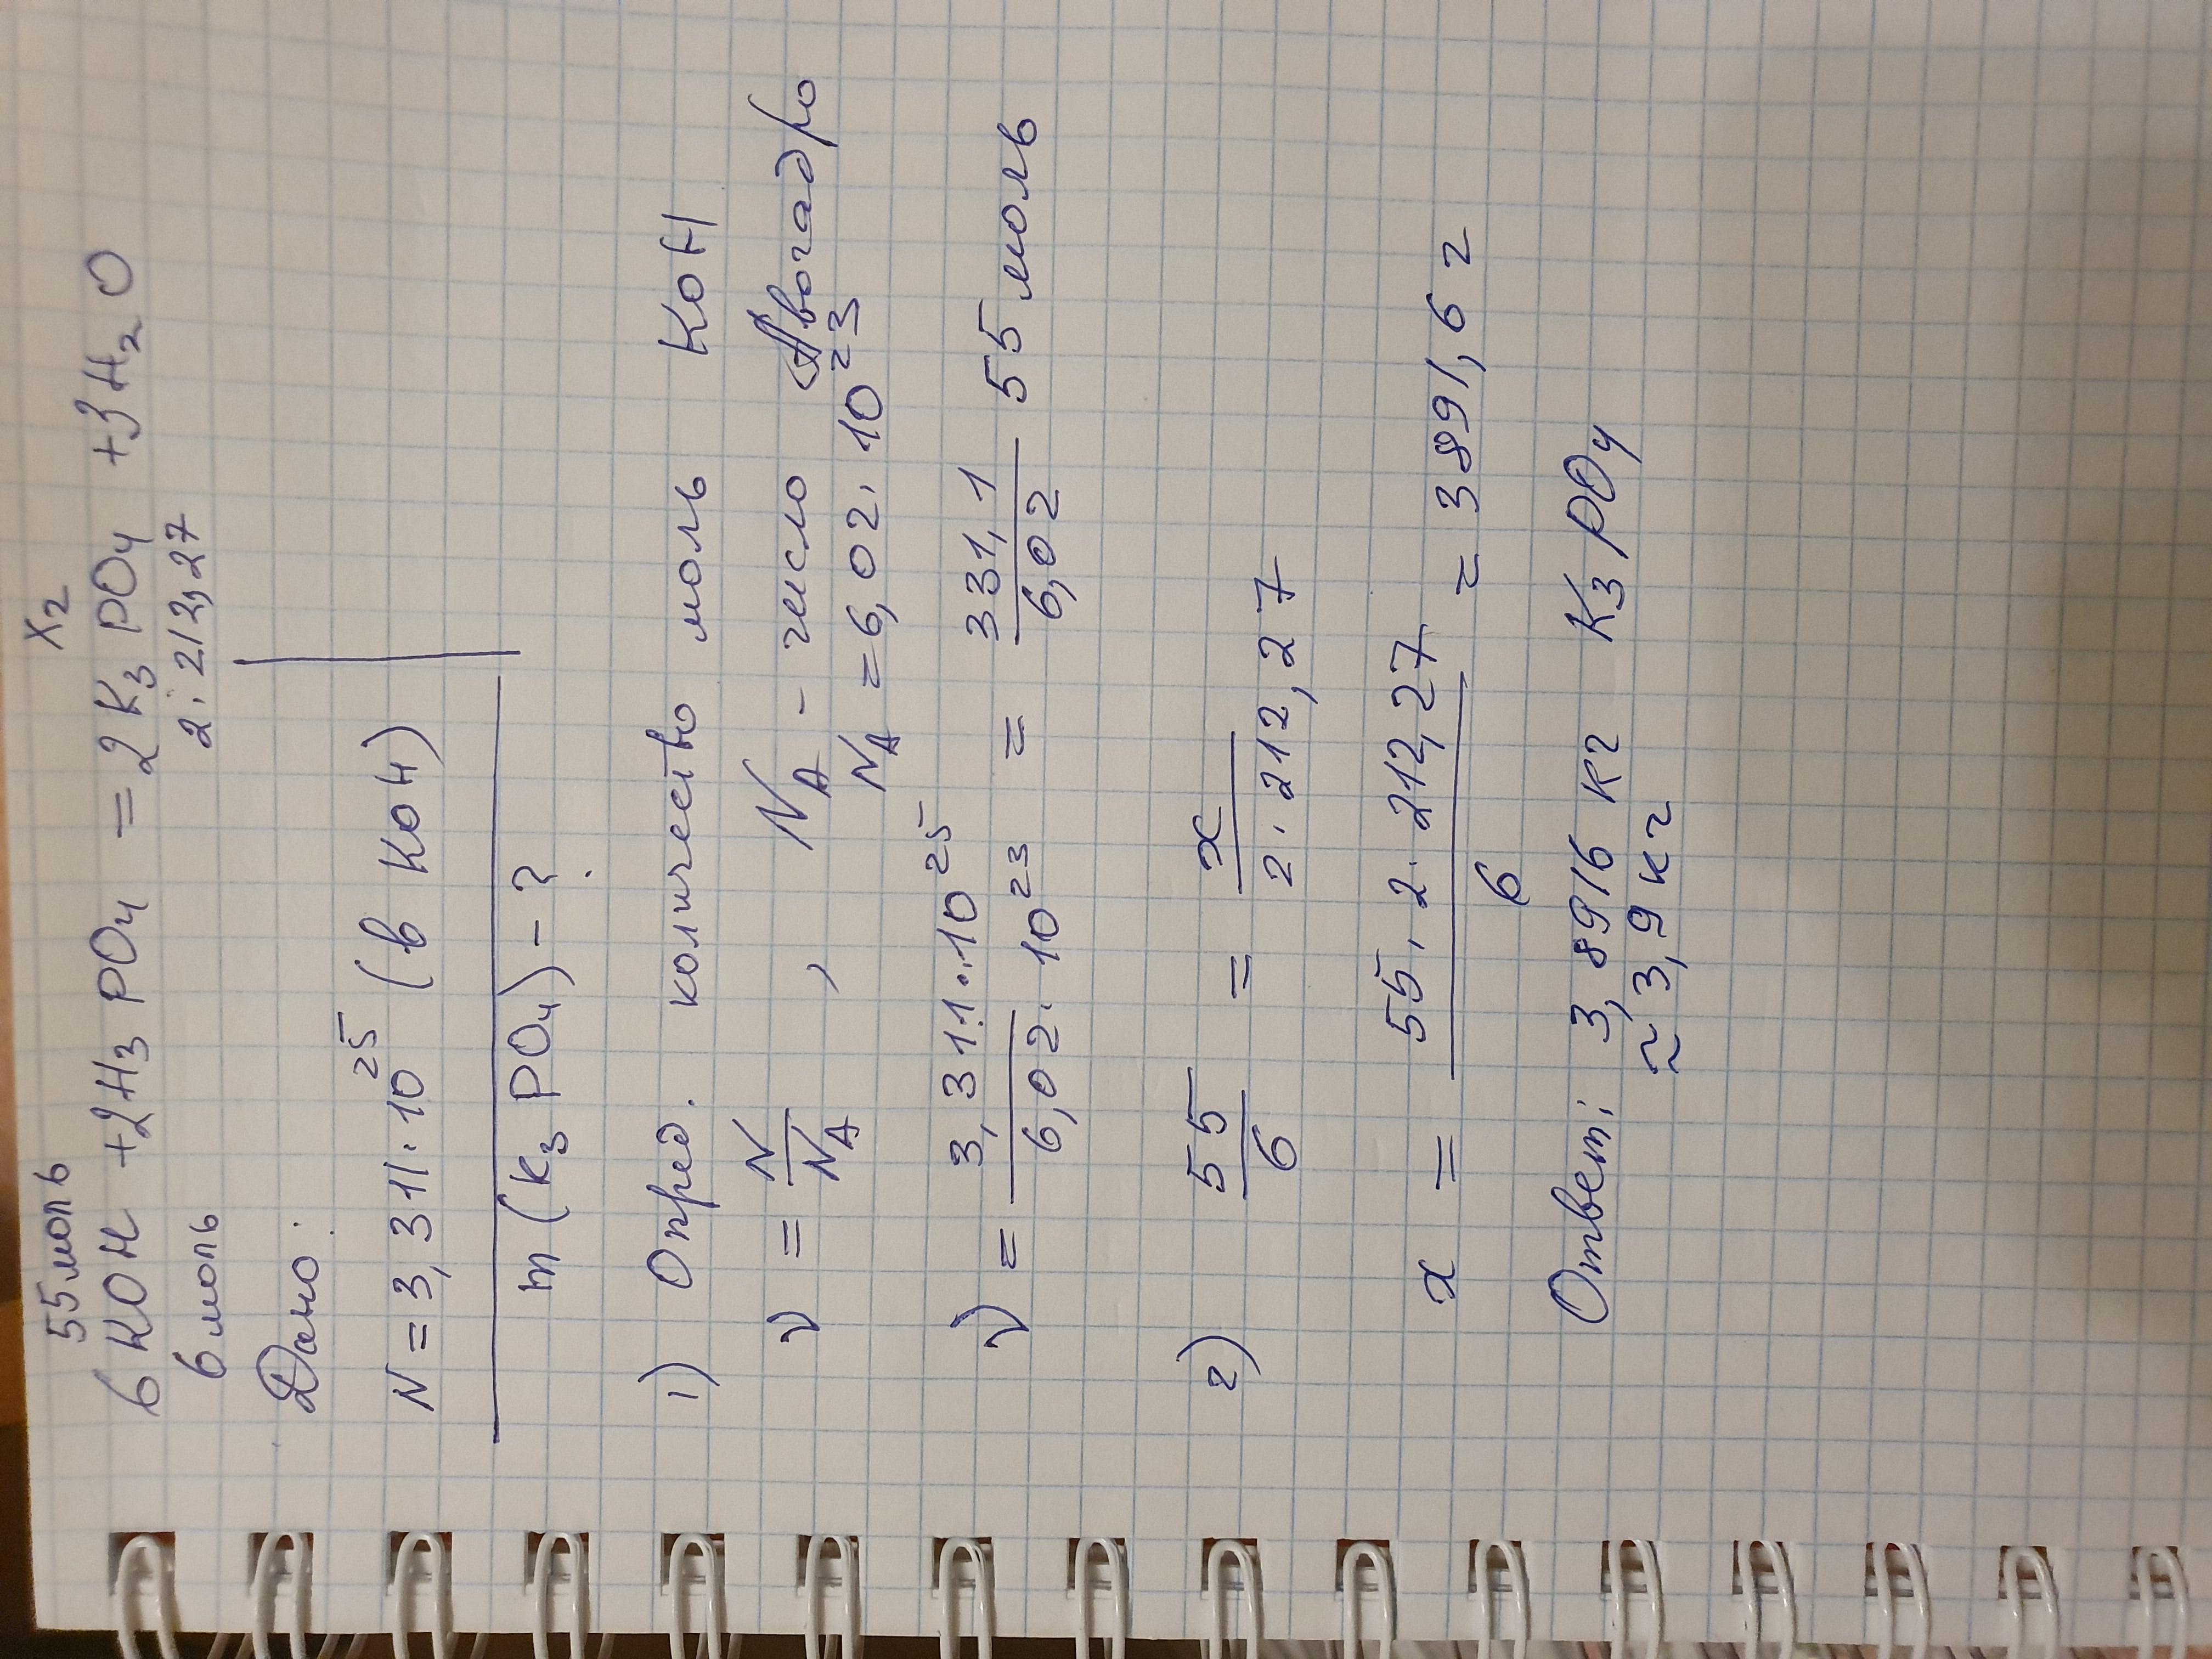 55 моль x г
6 KOH + 2H₃PO₄ = 2 K₃PO₄ + 3H₂O
6 моль 2 · 212,27
Дано:
N = 3,311 · 10²⁵ (в KOH)
m (K₃PO₄) - ?
1) Опред. количество моль KOH
ν = N/N_A , N_A - число Авогадро
N_A = 6,02 · 10²³
ν = 3,311 · 10²⁵ / 6,02 · 10²³ = 331,1 / 6,02 = 55 моль
2) 55/6 = x / 2 · 212,27
x = 55 · 2 · 212,27 / 6 = 3891,6 г
Ответ: 3,8916 кг K₃PO₄
≈ 3,9 кг